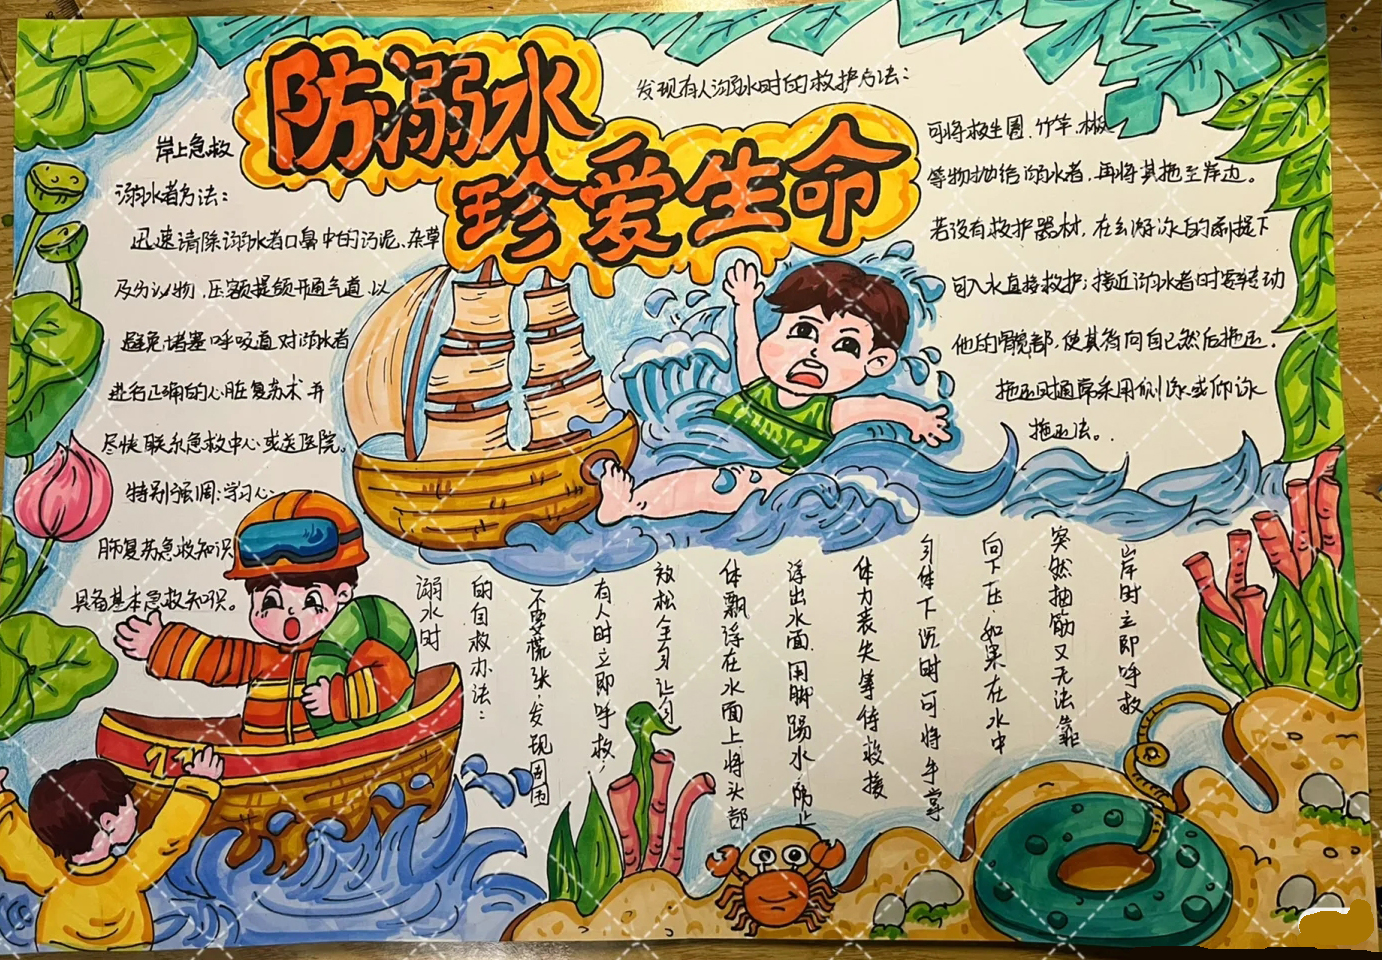 防溺水
珍爱生命
岸上急救
溺水者方法：
迅速清除溺水者口鼻中的污泥、杂草
及分泌物，压额提颌开通气道，以
避免堵塞呼吸道对溺水者
进行正确的心脏复苏术并
尽快联系急救中心或送医院。
特别强调：学习心
肺复苏急救知识
具备基本急救知识。
发现有人溺水时的救护方法：
可将救生圈、竹竿、木板
等物抛给溺水者，再将其拖至岸边。
若没有救护器材，在会游泳的前提下
可入水直接救护；接近溺水者时要转动
他的髋部，使其背向自己然后拖运。
拖运时通常采用侧泳或仰泳
拖运法。
溺水时
的自救办法：
不要慌张，发现周围
有人时立即呼救；
放松全身让身
体飘浮在水面上将头部
浮出水面用脚踢水防止
体力丧失等待救援
身体下沉时可将手掌
向下压，如果在水中
突然抽筋又无法靠
岸时立即呼救